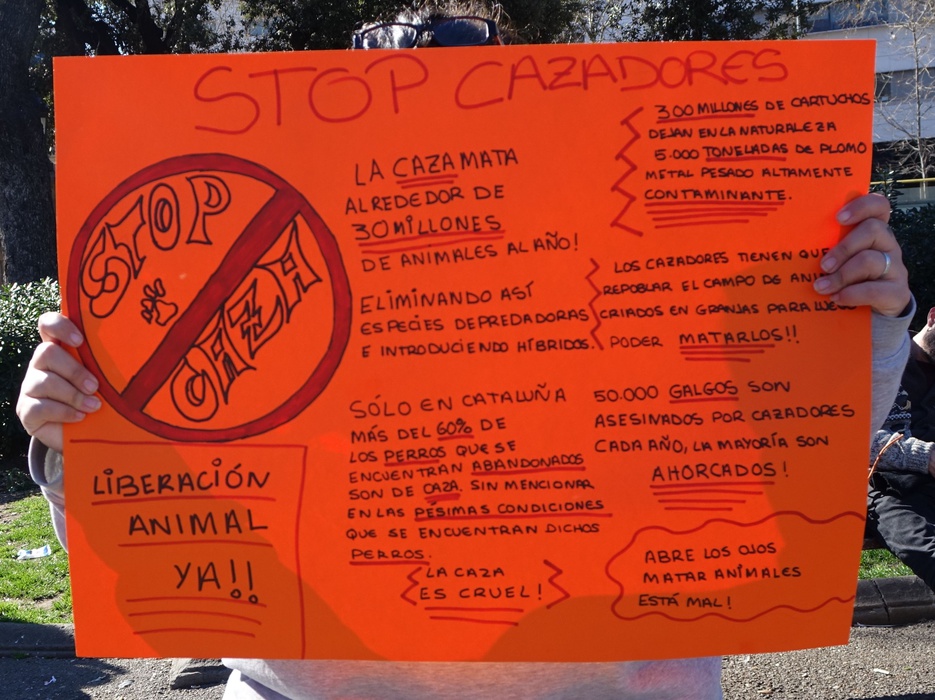 STOP CAZADORES
STOP
CAZA
LIBERACIÓN
ANIMAL
YA!!
LA CAZA MATA
ALREDEDOR DE
30 MILLONES
DE ANIMALES AL AÑO!
ELIMINANDO ASÍ
ESPECIES DEPREDADORAS
E INTRODUCIENDO HÍBRIDOS.
SÓLO EN CATALUÑA
MÁS DEL 60% DE
LOS PERROS QUE SE
ENCUENTRAN ABANDONADOS
SON DE CAZA. SIN MENCIONAR
EN LAS PÉSIMAS CONDICIONES
QUE SE ENCUENTRAN DICHOS
PERROS.
LA CAZA
ES CRUEL!
300 MILLONES DE CARTUCHOS
DEJAN EN LA NATURALEZA
5.000 TONELADAS DE PLOMO
METAL PESADO ALTAMENTE
CONTAMINANTE.
LOS CAZADORES TIENEN QUE
REPOBLAR EL CAMPO DE
CRIADOS EN GRANJAS PARA
PODER MATARLOS!!
50.000 GALGOS SON
ASESINADOS POR CAZADORES
CADA AÑO, LA MAYORÍA SON
AHORCADOS!
ABRE LOS OJOS
MATAR ANIMALES
ESTÁ MAL!